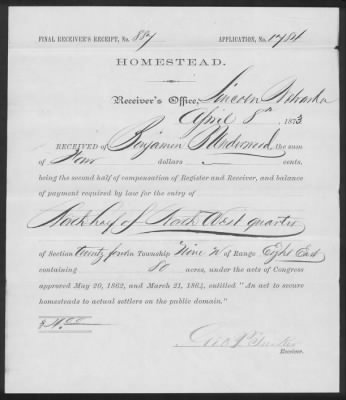 FINAL RECEIVER'S RECEIPT, No. 887 APPLICATION, No. 1784
HOMESTEAD.
Receiver's Office, Lincoln Nebraska
April 8th 1873
RECEIVED OF Benjamin Underwood the sum
of Four dollars cents,
being the second half of compensation of Register and Receiver, and balance
of payment required by law for the entry of
North half of North West quarter
of Section twenty four in Township Nine N of Range Eight East
containing 80 acres, under the acts of Congress
approved May 20, 1862, and March 21, 1864, entitled "An act to secure
homesteads to actual settlers on the public domain."
$4.00
Geo P Tucker
Receiver.